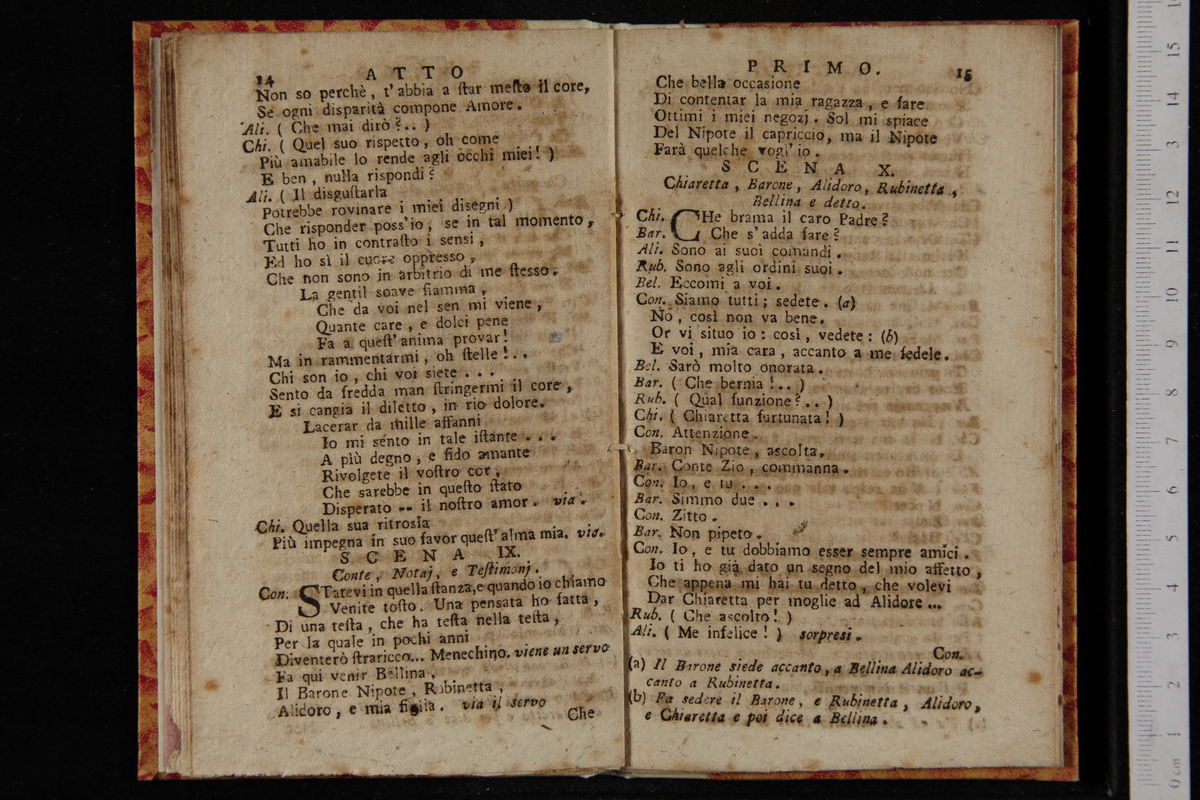 14 ATTO
Non so perchè, t'abbia a ſtar meſto il core,
Se ogni disparità compone Amore.
Ali. ( Che mai dirò?.. )
Chi. ( Quel suo rispetto, oh come
Più amabile lo rende agli occhi miei! )
E ben, nulla rispondi?
Ali. ( Il disguſtarla
Potrebbe rovinare i miei disegni )
Che risponder poss'io, se in tal momento,
Tutti ho in contraſto i sensi,
Ed ho sì il cuore oppresso,
Che non sono in arbitrio di me ſtesso.
La gentil soave fiamma,
Che da voi nel sen mi viene,
Quante care, e dolci pene
Fa a queſt'anima provar!
Ma in rammentarmi, oh ſtelle!..
Chi son io, chi voi siete...
Sento da fredda man ſtringermi il core,
E si cangia il diletto, in rio dolore.
Lacerar da mille affanni
Io mi sento in tale iſtante...
A più degno, e fido amante
Rivolgete il voſtro cor,
Che sarebbe in queſto ſtato
Disperato -- il noſtro amor. via.
Chi. Quella sua ritrosìa
Più impegna in suo favor queſt'alma mia. via.
SCENA IX.
Conte, Notaj, e Teſtimonj.
Con. STatevi in quella ſtanza, e quando io chiamo
Venite toſto. Una pensata ho fatta,
Di una teſta, che ha teſta nella teſta,
Per la quale in pochi anni
Diventerò ſtraricco... Menechino. viene un servo
Fa qui venir Bellina,
Il Barone Nipote, Rubinetta,
Alidoro, e mia figlia. via il servo
Che
PRIMO. 15
Che bella occasione
Di contentar la mia ragazza, e fare
Ottimi i miei negozj. Sol mi spiace
Del Nipote il capriccio, ma il Nipote
Farà quelche vogl'io.
SCENA X.
Chiaretta, Barone, Alidoro, Rubinetta,
Bellina e detto.
Chi. CHe brama il caro Padre?
Bar. Che s'adda fare?
Ali. Sono ai suoi comandi.
Rub. Sono agli ordini suoi.
Bel. Eccomi a voi.
Con. Siamo tutti; sedete. (a)
No, così non va bene.
Or vi situo io: così, vedete: (b)
E voi, mia cara, accanto a me ſedele.
Bel. Sarò molto onorata.
Bar. ( Che bernia!.. )
Rub. ( Qual funzione?.. )
Chi. ( Chiaretta furtunata! )
Con. Attenzione.
Baron Nipote, ascolta.
Bar. Conte Zio, commanna.
Con. Io, e tu...
Bar. Simmo due...
Con. Zitto.
Bar. Non pipeto.
Con. Io, e tu dobbiamo esser sempre amici.
Io ti ho già dato un segno del mio affetto,
Che appena mi hai tu detto, che volevi
Dar Chiaretta per moglie ad Alidore...
Rub. ( Che ascolto! )
Ali. ( Me infelice! ) sorpresi.
Con.
(a) Il Barone siede accanto, a Bellina Alidoro ac-
canto a Rubinetta.
(b) Fa sedere il Barone, e Rubinetta, Alidoro,
e Chiaretta e poi dice a Bellina.